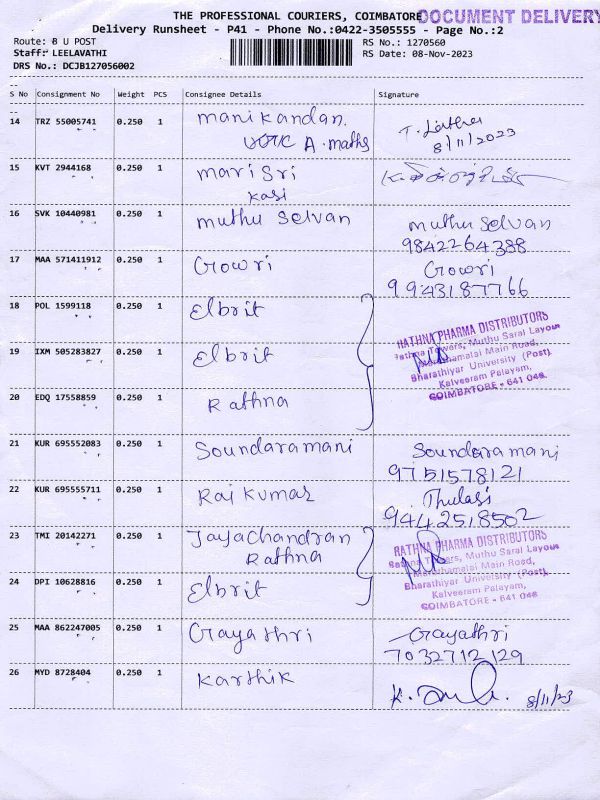 THE PROFESSIONAL COURIERS, COIMBATORE
DOCUMENT DELIVERY
Delivery Runsheet - P41 - Phone No.:0422-3505555 - Page No.:2
Route: B U POST
RS No.: 1270560
Staff: LEELAVATHI
RS Date: 08-Nov-2023
DRS No.: DCJB127056002
S No Consignment No Weight PCS Consignee Details Signature
14 TRZ 55005741 0.250 1 Manikandan.
A. Maths
8/11/2023
15 KVT 2944168 0.250 1 Mari Sri
Kasi
16 SVK 10440981 0.250 1 Muthu Selvan Muthu Selvan
9842264388
17 MAA 571411912 0.250 1 Gowri Gowri
9943187766
18 POL 1599118 0.250 1 Elbrit
RATHNA PHARMA DISTRIBUTORS
Rathna Towers, Muthu Saral Layout
Maruthamalai Main Road,
Bharathiyar University (Post),
Kalveeram Palayam,
COIMBATORE - 641 046
19 IXM 505283827 0.250 1 Elbrit
20 EDQ 17558859 0.250 1 Rathna
21 KUR 695552083 0.250 1 Soundaramani Soundaramani
9751578121
22 KUR 695555711 0.250 1 Rajkumar Thulasi
9442518502
23 TMI 20142271 0.250 1 Jayachandran
Rathna
RATHNA PHARMA DISTRIBUTORS
Rathna Towers, Muthu Saral Layout
Maruthamalai Main Road,
Bharathiyar University (Post),
Kalveeram Palayam,
COIMBATORE - 641 046
24 DPI 10628816 0.250 1 Elbrit
25 MAA 862247005 0.250 1 Gayathri Gayathri
7032712129
26 MYD 8728404 0.250 1 Karthik 8/11/23